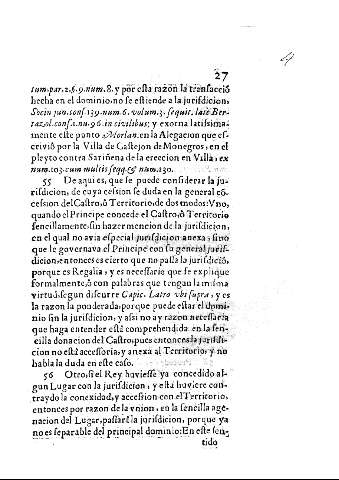 27
tum.par.2.§.9.num.8. y por esta razon la transacciõ
hecha en el dominio, no se estiende a la jurisdicion,
Socin jun.conf.139.num.6.volum.3. sequit. latè Ber-
tazol.conf.1.nu.96.in civilibus; y exorna latissima-
mente este punto Morlan. en la Alegacion que es-
criviò por la Villa de Castejon de Monegros, en el
pleyto contra Sariñena de la ereccion en Villa, ex
num.103.cum multis seqq.& num.130.
55 De aqui es, que se puede considerar la ju-
risdicion, de cuya cession se duda en la general cõ-
cession del Castro, ò Territorio, de dos modos: Vno,
quando el Principe concede el Castro, ò Territorio
sencillamente, sin hazer mencion de la jurisdicion,
en el qual no avia especial jurisdicion anexa, sino
que le governava el Principe con su general juris-
dicion, entonces es cierto que no passa la jurisdiciõ,
porque es Regalia, y es necessario que se explique
formalmente, ò con palabras que tengan la misma
virtud, segun discurre Capic. Latro vbi supra, y es
la razon la ponderada, porque puede estar el domi-
nio sin la jurisdicion, y assi no ay razon necessaria
que haga entender està comprehendida en la sen-
cilla donacion del Castro, pues entonces la jurisdi-
cion no està accessoria, y anexa al Territorio, y no
habla la duda en este caso.
56 Otro, si el Rey huviesse ya concedido al-
gun Lugar con la jurisdicion, y està huviere con-
traydo la conexidad, y accession con el Territorio,
entonces por razon de la vnion, en la sencilla age-
nacion del Lugar, passarà la jurisdicion, porque ya
no es separable del principal dominio: En este sen-
tido